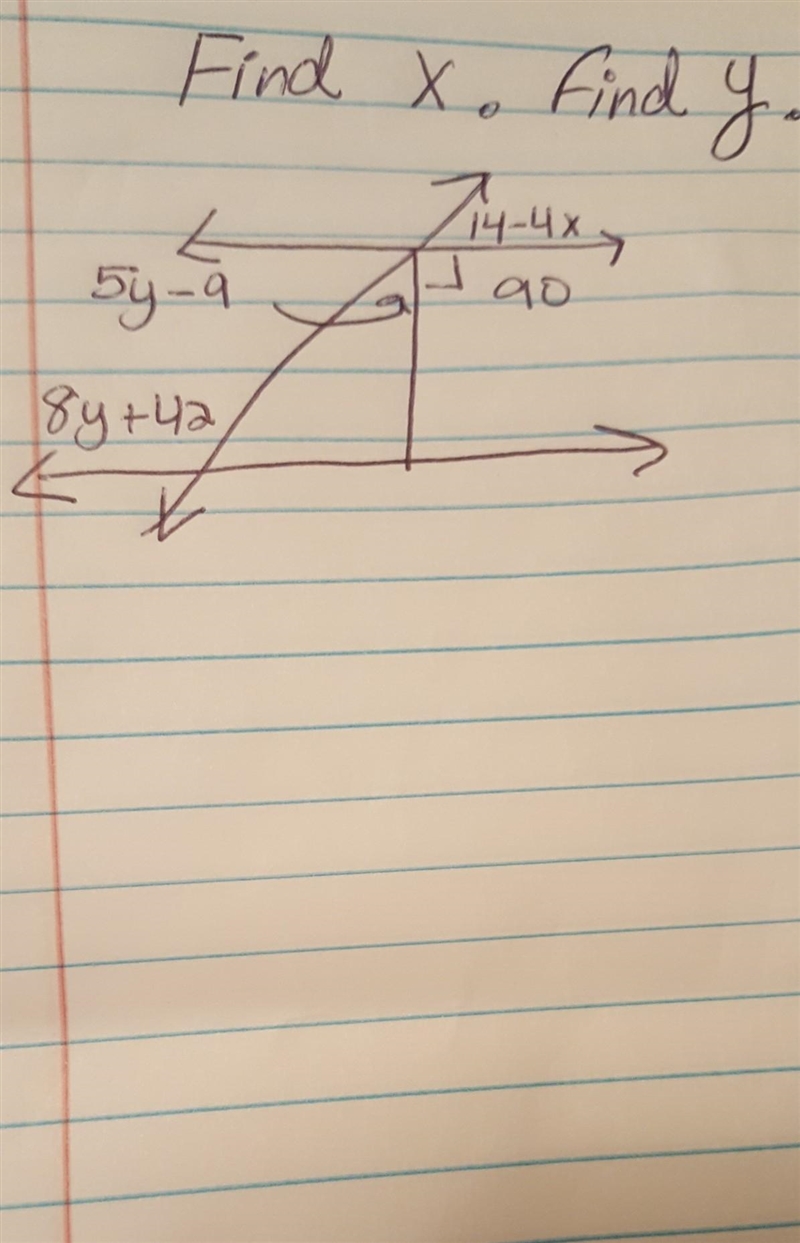 Find x. Find y.
14-4x
5y-9
90
8y+42